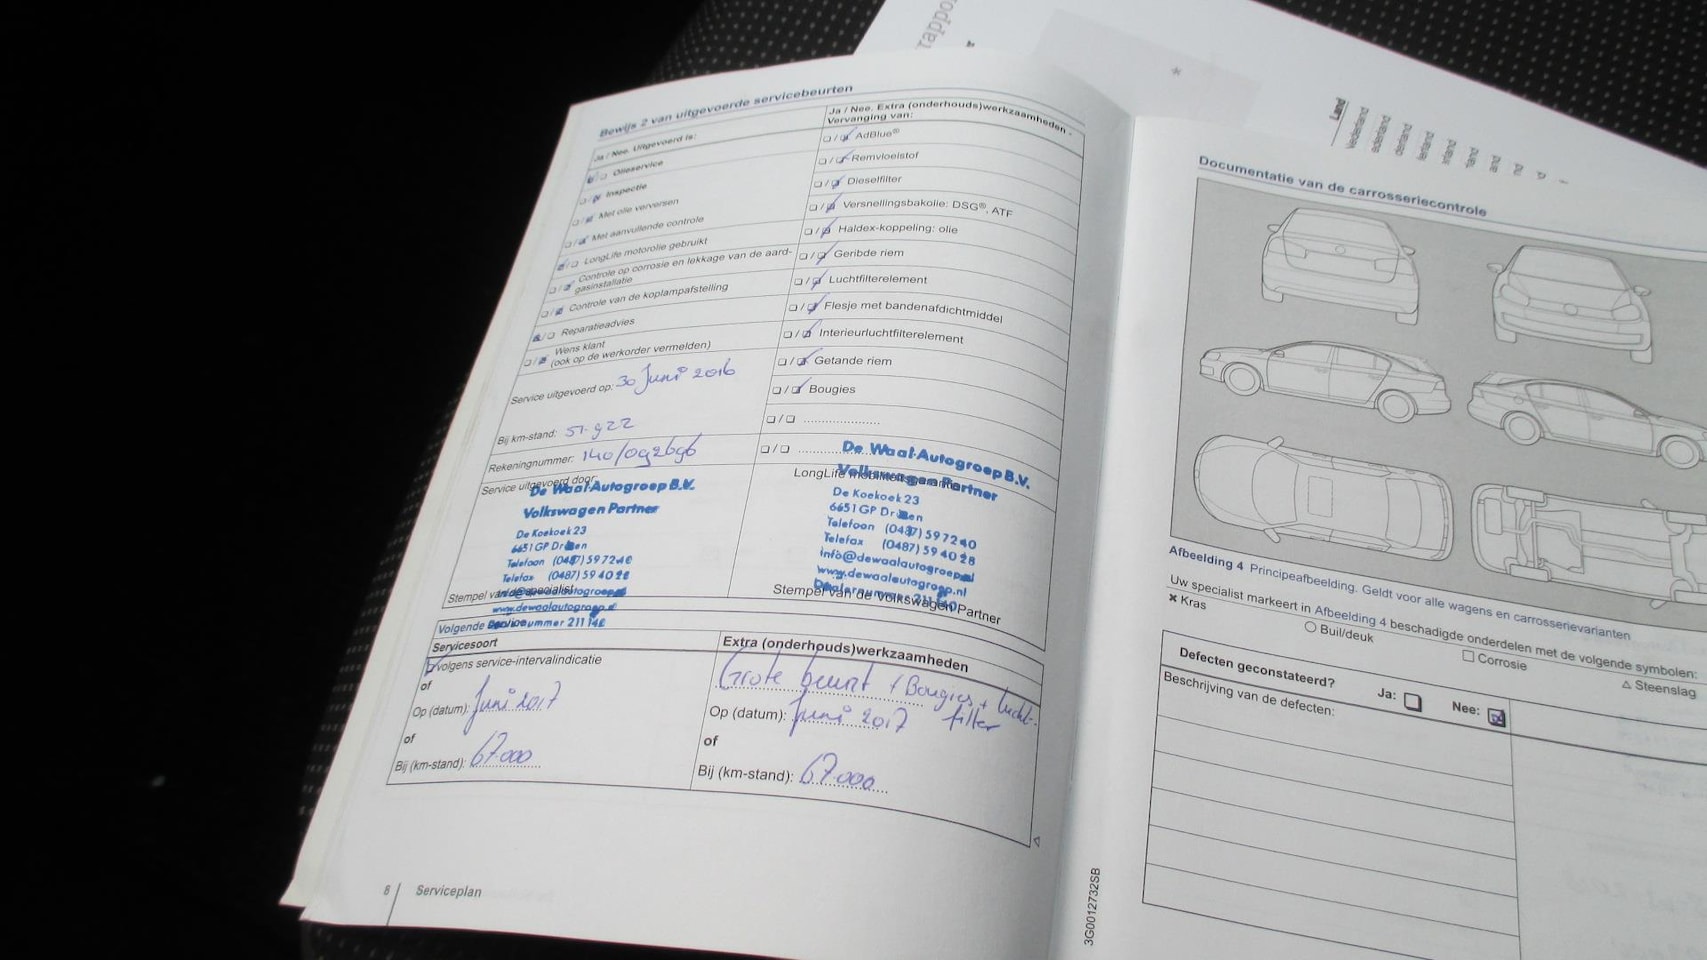 Bewijs 2 van uitgevoerde servicebeurten
Ja / Nee. Uitgevoerd is:
Olieservice
Inspectie
Met olie verversen
Met aanvullende controle
LongLife motorolie gebruikt
Controle op corrosie en lekkage van de aard-
gasinstallatie
Controle van de koplampafstelling
Reparatieadvies
Wens klant
(ook op de werkorder vermelden)
Service uitgevoerd op: 30 Juni 2016
Bij km-stand: 51.922
Rekeningnummer: 140/092696
Service uitgevoerd door:
De Waal Autogroep B.V.
Volkswagen Partner
De Koekoek 23
6651 GP Druten
Telefoon (0487) 59 72 40
Telefax (0487) 59 40 28
info@dewaalautogroep.nl
Stempel van de specialist
www.dewaalautogroep.nl
Dealernummer 211 140
Ja / Nee. Extra (onderhouds)werkzaamheden -
Vervanging van:
AdBlue®
Remvloeistof
Dieselfilter
Versnellingsbakolie: DSG®, ATF
Haldex-koppeling: olie
Geribde riem
Luchtfilterelement
Flesje met bandenafdichtmiddel
Interieurluchtfilterelement
Getande riem
Bougies
De Waal Autogroep B.V.
LongLife
Volkswagen Partner
De Koekoek 23
6651 GP Druten
Telefoon (0487) 59 72 40
Telefax (0487) 59 40 28
info@dewaalautogroep.nl
www.dewaalautogroep.nl
Dealernummer 211 140
Stempel van de Volkswagen Partner
Volgende service
Servicesoort
volgens service-intervalindicatie
of
Op (datum): Juni 2017
of
Bij (km-stand): 67.000
Extra (onderhouds)werkzaamheden
Grote beurt + Bougies + lucht-
filter
Op (datum): Juni 2017
of
Bij (km-stand): 67.000
8 Serviceplan
3G0012732SB
Land
Documentatie van de carrosseriecontrole
Afbeelding 4 Principeafbeelding. Geldt voor alle wagens en carrosserievarianten
Uw specialist markeert in Afbeelding 4 beschadigde onderdelen met de volgende symbolen:
Kras
Buil/deuk
Corrosie
Steenslag
Defecten geconstateerd? Ja: Nee:
Beschrijving van de defecten: